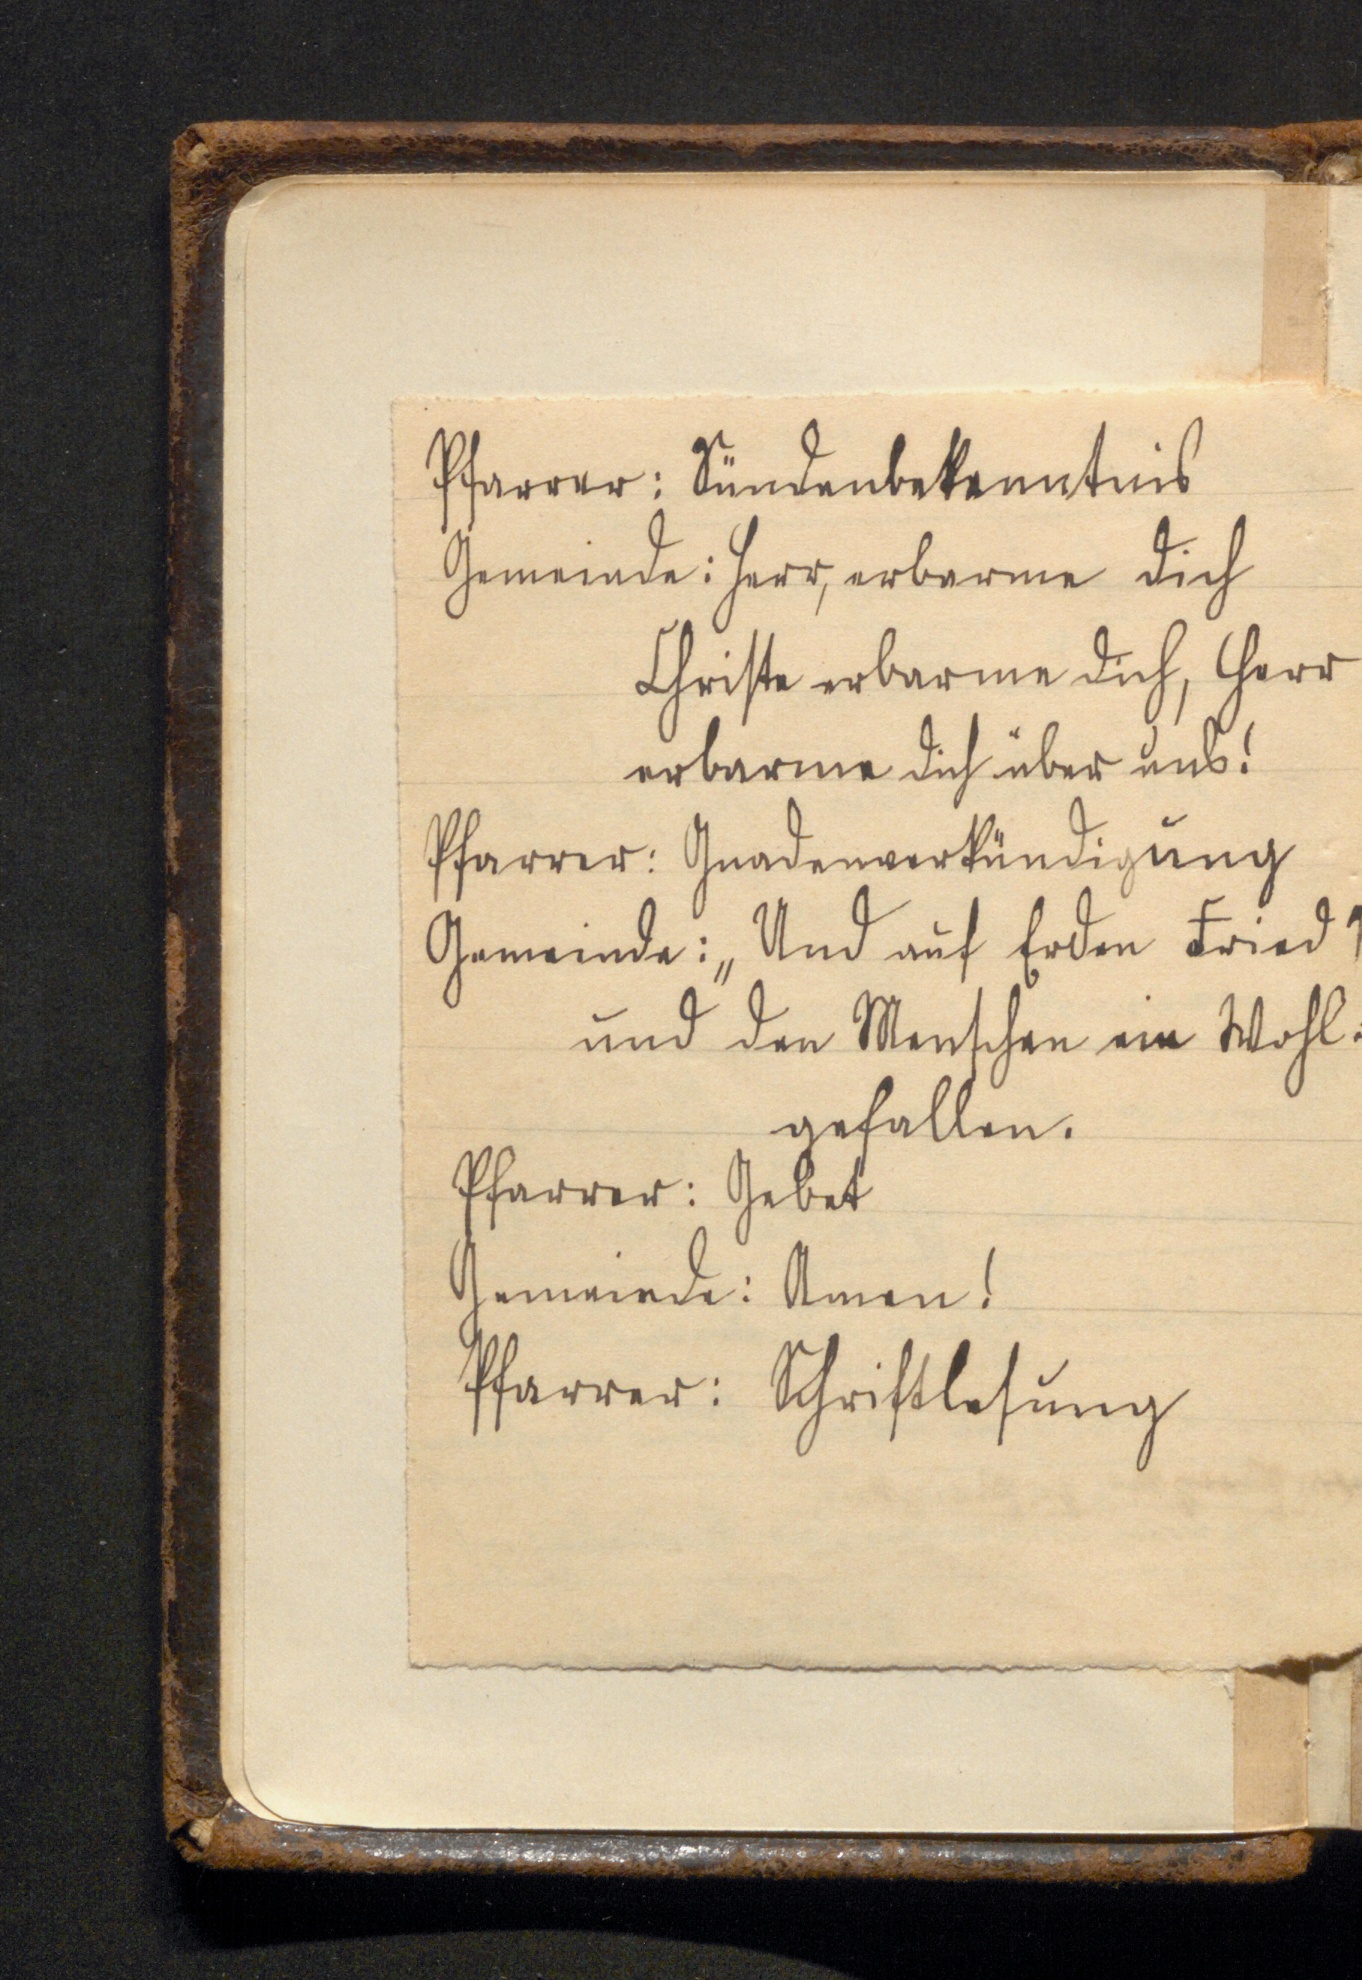 Pfarrer: Sündenbekenntnis
Gemeinde: Herr, erbarme dich
Christe erbarme dich, Herr
erbarme dich über uns!
Pfarrer: Gnadenverkündigung
Gemeinde: „Und auf Erden Fried
und den Menschen ein Wohl-
gefallen.
Pfarrer: Gebet
Gemeinde: Amen!
Pfarrer: Schriftlesung